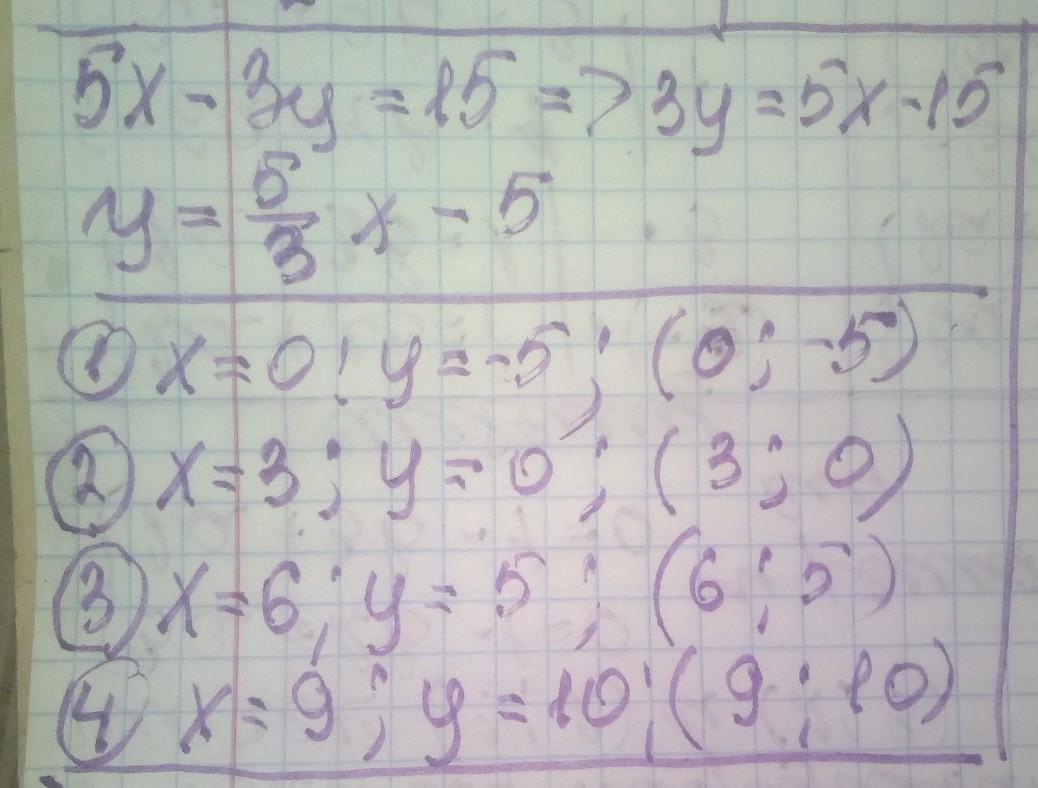 5x - 3y = 15 => 3y = 5x - 15
y = 5/3 x - 5
① x = 0; y = -5; (0; -5)
② x = 3; y = 0; (3; 0)
③ x = 6; y = 5; (6; 5)
④ x = 9; y = 10; (9; 10)